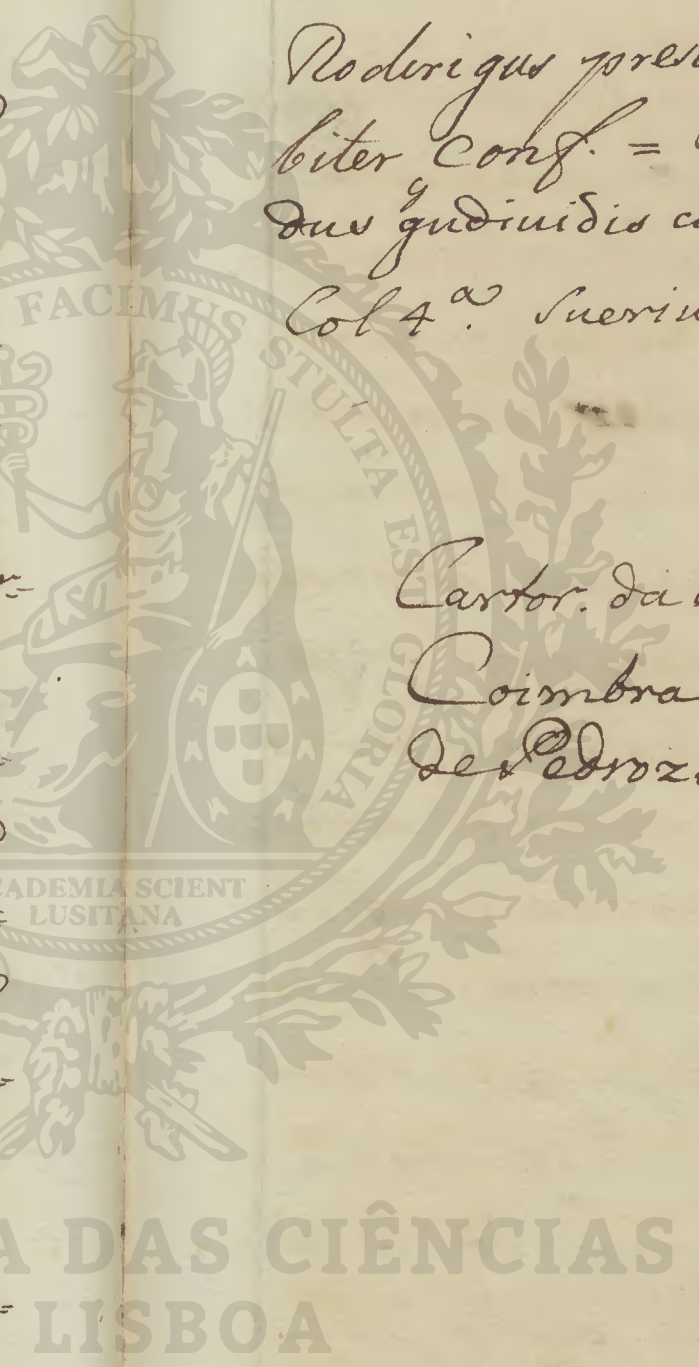 Roderigus pres
biter Conf. =
dus gudiuidis c
Col 4ª. Sueriu
Cartor. da
Coimbra
de Pedroz
FACIMUS STULTA EST GLORIA
ACADEMIA SCIENT
LUSITANA
A DAS CIÊNCIAS
LISBOA